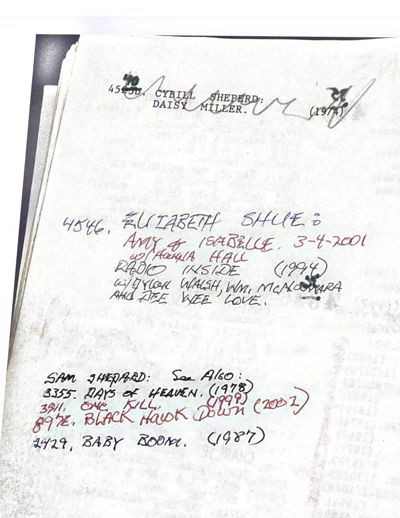 CYBILL SHEPERD:
DAISY MILLER. (1974)
4846. ELIZABETH SHUE:
AMY & ISABELLE. 3-4-2001
W/ HALL
RADIO INSIDE (1994)
W/DYLAN WALSH, WM. McNAMARA
AND DEE WEE LOVE.
SAM SHEPARD: See Also:
3355. DAYS OF HEAVEN. (1978)
3911. ONE KILL. (1999)
897E. BLACK HAWK DOWN (2001)
2429. BABY BOOM. (1987)